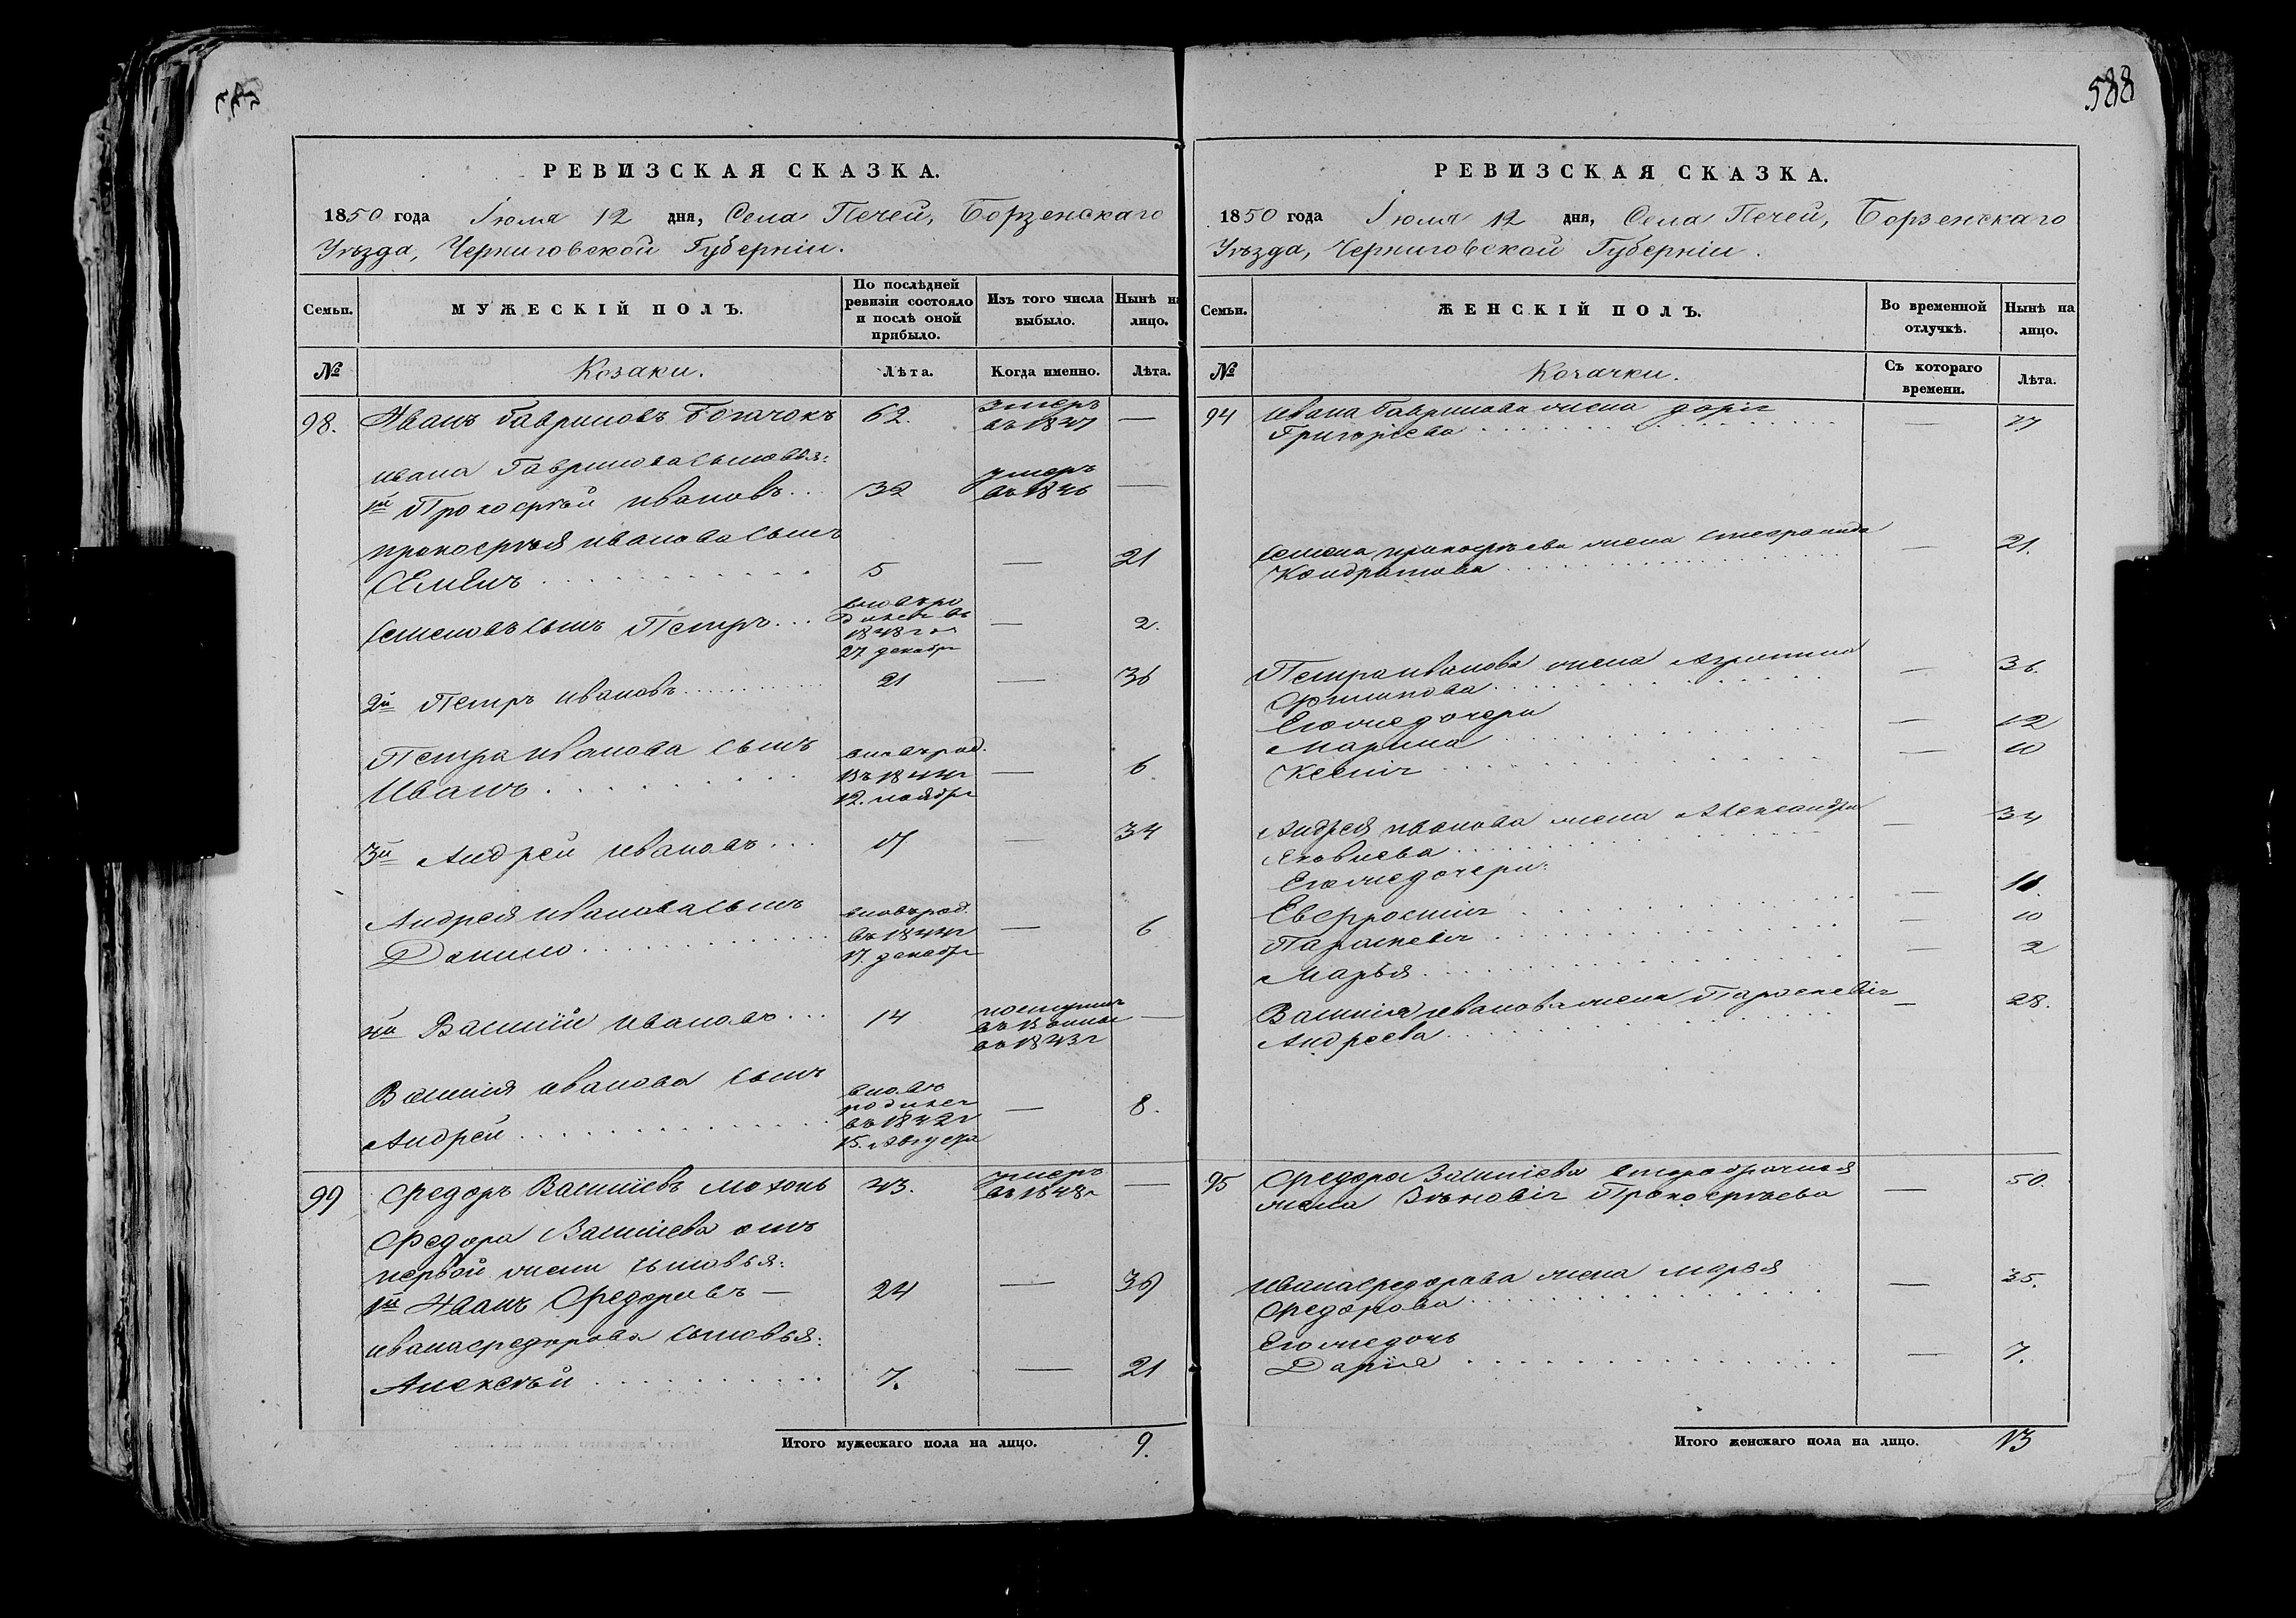 588
РЕВИЗСКАЯ СКАЗКА.
1850 года Іюля 12 дня, Села Печей, Борзенскаго
Уѣзда, Черниговской Губерніи.
Семьи.
МУЖЕСКІЙ ПОЛЪ.
По послѣдней
ревизіи состояло
и послѣ оной
прибыло.
Изъ того числа
выбыло.
Нынѣ на
лицо.
№
Козаки.
Лѣта.
Когда именно.
Лѣта.
98. Иванъ Гавриловъ Богачокъ 62. умеръ —
въ 1847
Ивана Гаврилова сыновья:
1й Прокофѣй Ивановъ... 32 умеръ —
въ 1846
Прокофѣя Иванова сынъ
Семенъ 5 — 21
Семеновъ сынъ Петръ... вновь ро
дился въ — 2.
1848 го
27 декабря
2й Петръ Ивановъ 21 — 36
Петра Иванова сынъ вновь род.
Иванъ въ 1844 г — 6
12. ноября
3й Андрей Ивановъ... 17 — 34
Андрея Иванова сынъ вновь род.
Данило въ 1844 г — 6
17. декабря
4й Василій Ивановъ... 14 —
въ 1843 г
Василія Иванова сынъ вновь
родился — 8.
Андрей въ 1842 г
15. Августа
99 Федоръ Василіевъ 43. умеръ —
въ 1848 г
Федора Василіева отъ
первой жены сыновья:
1й Иванъ Федоровъ — 24 — 39
Ивана Федорова сыновья:
Алексѣй 7. — 21
Итого мужескаго пола на лицо. 9.
РЕВИЗСКАЯ СКАЗКА.
1850 года Іюля 12 дня, Села Печей, Борзенскаго
Уѣзда, Черниговской Губерніи.
Семьи.
ЖЕНСКІЙ ПОЛЪ.
Во временной
отлучкѣ.
Нынѣ на
лицо.
№
Козачки.
Съ котораго
времени.
Лѣта.
94 Ивана Гаврилова жена Дарія
Григоріева — 77
Семена Прокофѣева жена Стефанида — 21.
Кондратова
Петра Иванова жена Агрипина — 36.
Филипова
Его же дочери
Марина — 12
Ксенія — 10
Андрея Иванова жена Александра — 34
Яковлева
Его же дочери:
Евфросинія — 11.
Параскевія — 10
Марья — 2
Василія Иванова жена Параскевія — 28.
Андреева
95 Федора Василіева второбрачная — 50.
жена Зѣновія Прокофѣева
Ивана Федорова жена Марья — 35.
Федорова
Его же дочь
Дарія — 7.
Итого женскаго пола на лицо. 13